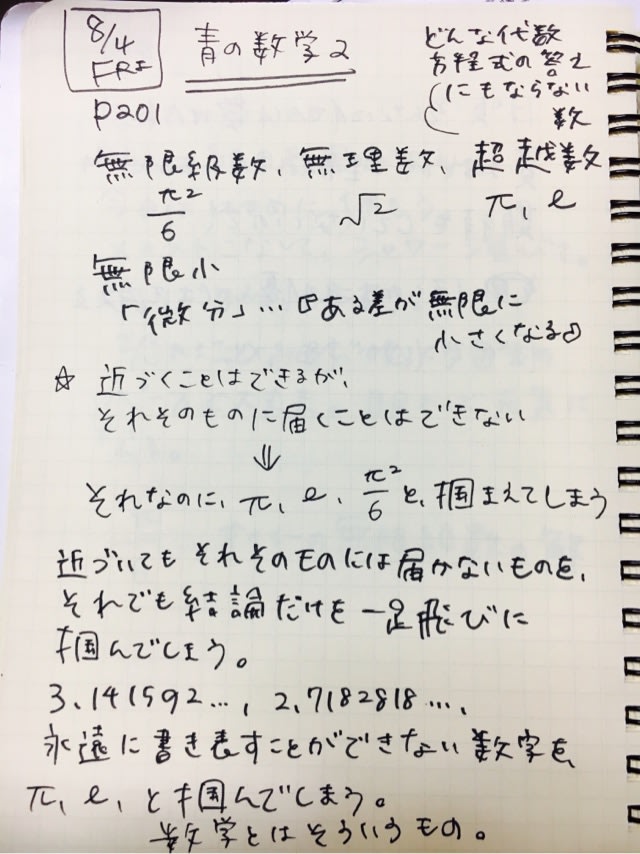 8/4
FRI
青の数学2
どんな代数
方程式の答え
にもならない
数
P201
無限級数、無理数、超越数
π²/6 √2 π、e
無限小
「微分」…『ある差が無限に
小さくなる』
☆ 近づくことはできるが、
それそのものに届くことはできない
⇓
それなのに、π、e、π²/6 と、掴まえてしまう
近づいてもそれそのものには届かないものを、
それでも結論だけを一足飛びに
掴んでしまう。
3.141592…, 2.7182818…、
永遠に書き表すことができない数字を、
π、e、と掴んでしまう。
数学とはそういうもの。